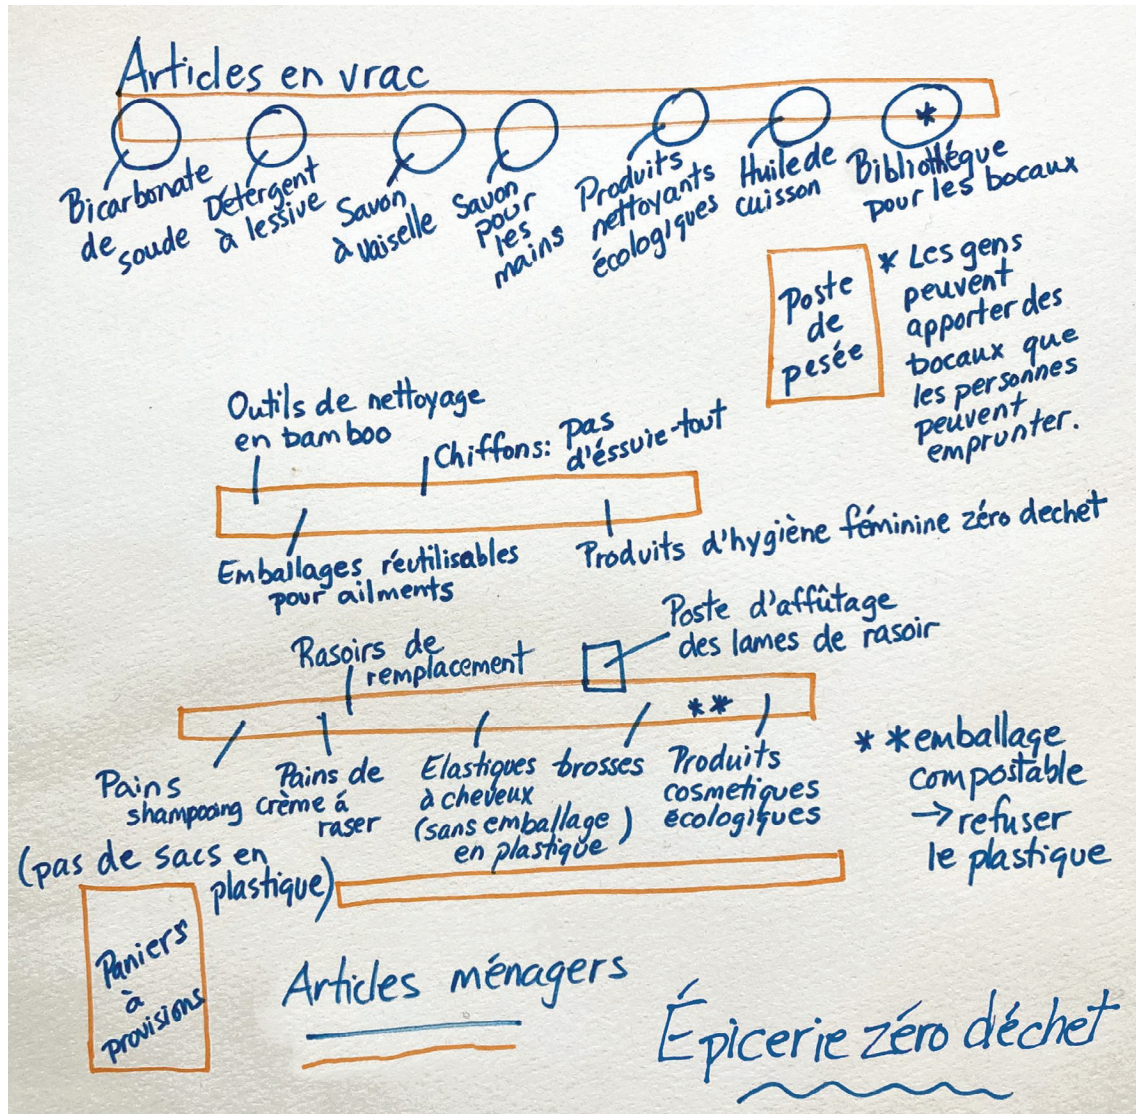 Articles en vrac
Bicarbonate
de soude
Détergent
à lessive
Savon
à vaiselle
Savon
pour
les
mains
Produits
nettoyants
écologiques
Huile de
cuisson
*
Bibliothéque
pour les bocaux
Poste
de
pesée
* Les gens
peuvent
apporter des
bocaux que
les personnes
peuvent
emprunter.
Outils de nettoyage
en bamboo
Chiffons: pas
d'éssuie-tout
Emballages réutilisables
pour ailments
Produits d'hygiène féminine zéro dechet
Rasoirs de
remplacement
Poste d'affûtage
des lames de rasoir
**
Pains
shampooing
Pains de
crème á
raser
Elastiques
à cheveux
(sans emballage
en plastique)
brosses
Produits
cosmetiques
écologiques
**emballage
compostable
→ refuser
le plastique
(pas de sacs en
plastique)
Paniers
à
provisions
Articles ménagers
Épicerie zéro déchet